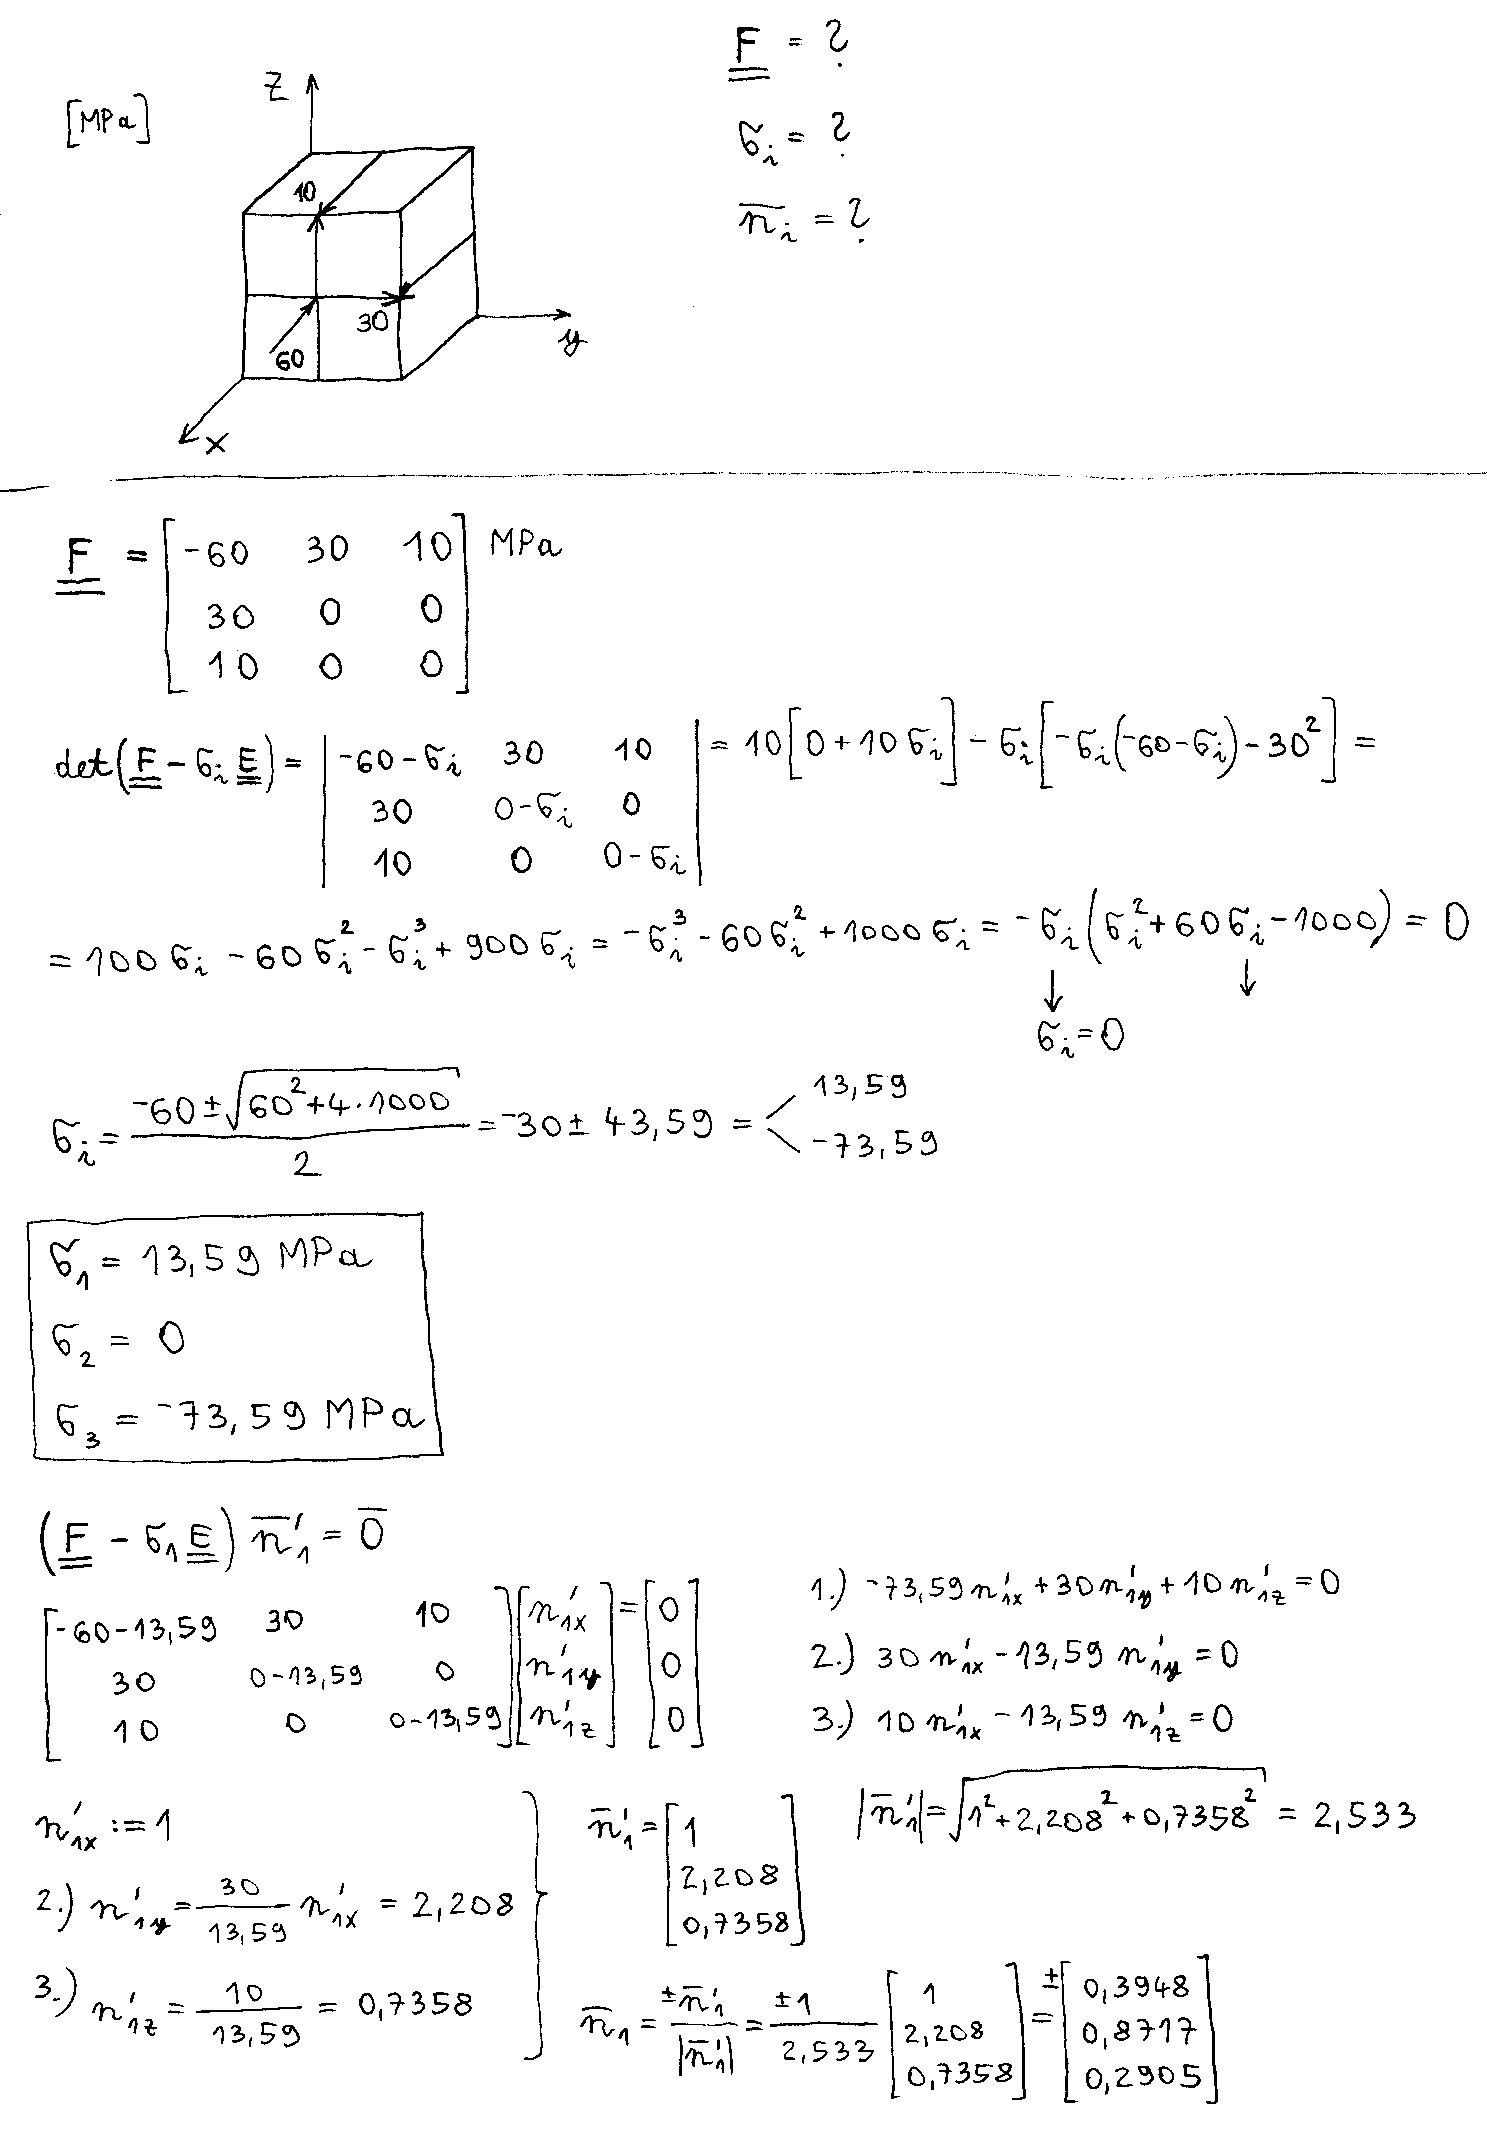 F = ?
[MPa]
z
σi = ?
n̄i = ?
10
30
60
y
x
F = [-60 30 10] MPa
30 0 0
10 0 0
det(F - σi E) = |-60-σi 30 10| = 10[0+10σi] - σi[-σi(-60-σi)-30²] =
30 0-σi 0
10 0 0-σi
= 100σi - 60σi² - σi³ + 900σi = -σi³ - 60σi² + 1000σi = -σi(σi² + 60σi - 1000) = 0
↓ ↓
σi = 0
σi = (-60 ± √(60² + 4·1000))/2 = -30 ± 43,59 = < 13,59
-73,59
σ1 = 13,59 MPa
σ2 = 0
σ3 = -73,59 MPa
(F - σ1 E) n̄'1 = 0̄
[-60-13,59 30 10][n'1x] = [0]
30 0-13,59 0 n'1y 0
10 0 0-13,59 n'1z 0
1.) -73,59 n'1x + 30 n'1y + 10 n'1z = 0
2.) 30 n'1x - 13,59 n'1y = 0
3.) 10 n'1x - 13,59 n'1z = 0
n'1x := 1
2.) n'1y = 30/13,59 n'1x = 2,208
3.) n'1z = 10/13,59 = 0,7358
n̄'1 = [1
2,208
0,7358]
|n̄'1| = √(1² + 2,208² + 0,7358²) = 2,533
n̄1 = ±n̄'1/|n̄'1| = ±1/2,533 [1 = ±[0,3948
2,208 0,8717
0,7358] 0,2905]